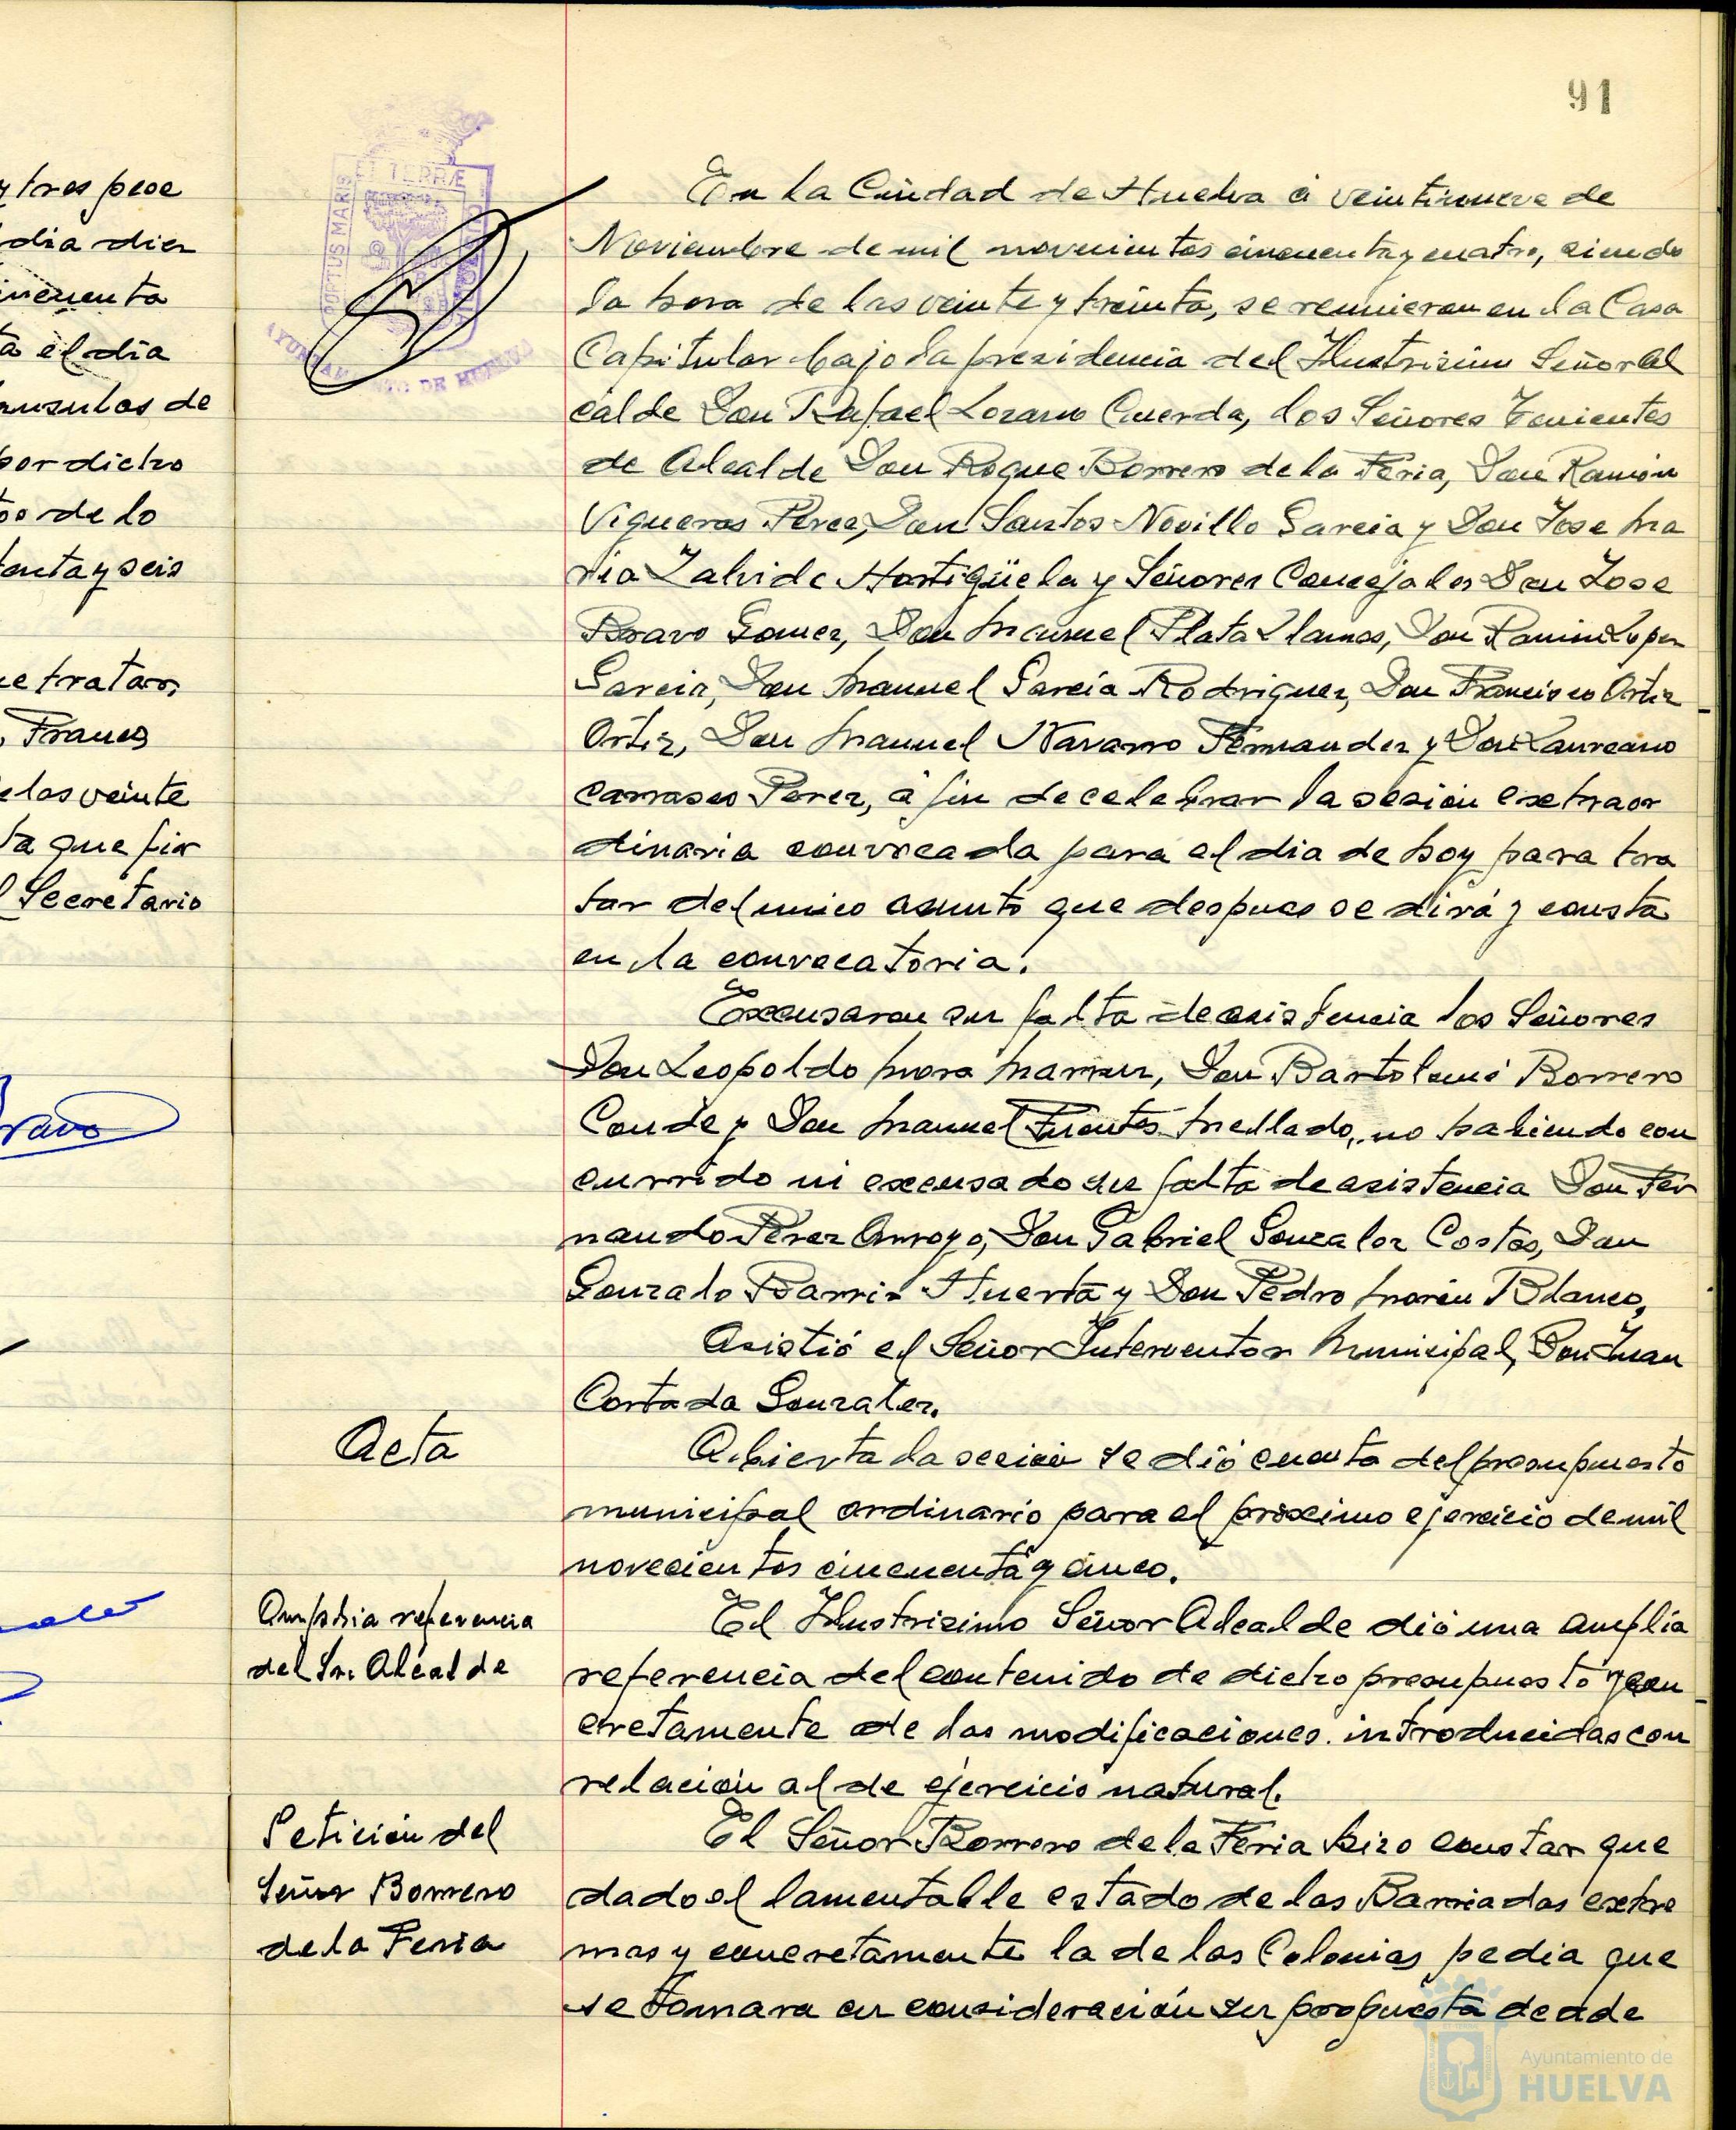 y tres pese
dia diez
cincuenta
ta el dia
de
por dicho
de lo
y seis
que tratar,
Franco
de las veinte
ta que fir
el Secretario
91
ET TERRÆ
PORTUS MARIS
AYUNTAMIENTO DE HUELVA
En la Ciudad de Huelva a veintinueve de
Noviembre de mil novecientos cincuenta y cuatro, siendo
la hora de las veinte y treinta, se reunieron en la Casa
Capitular bajo la presidencia del Ilustrisimo Señor Al
calde Don Rafael Lozano Cuerda, los Señores Tenientes
de Alcalde Don Roque Borrero de la Feria, Don Ramón
Vigueras Perez, Don Santos Novillo Garcia y Don Jose Ma
ria Zalvide Hortigüela y Señores Concejales Don Jose
Bravo Gomez, Don Manuel Plata Llamas, Don Ramón Lopez
Garcia, Don Manuel Garcia Rodriguez, Don Francisco Ortiz
Ortiz, Don Manuel Navarro Fernandez y Don Laureano
Carrasco Perez, a fin de celebrar la sesión extraor
dinaria convocada para el dia de hoy para tra
tar del unico asunto que despues se dirá y consta
en la convocatoria.
Excusaron su falta de asistencia los Señores
Don Leopoldo Mora Don Bartolomé Borrero
Conde y Don Manuel Fuentes Mellado, no habiendo con
currido ni excusado su falta de asistencia Don Fer
nando Perez Arroyo, Don Gabriel Gonzalez Costas, Don
Gonzalo Barris Huerta y Don Pedro Morón Blanco.
Asistió el Señor Interventor Municipal, Don Juan
Cortada Gonzalez.
Acta
Abierta la sesión se dió cuenta del presupuesto
municipal ordinario para el próximo ejercicio de mil
novecientos cincuenta y cinco.
Amplia referencia
del Sr. Alcalde
El Ilustrisimo Señor Alcalde dió una amplia
referencia del contenido de dicho presupuesto y con
cretamente de las modificaciones introducidas con
relación al de ejercicio natural.
Petición del
Señor Borrero
de la Feria
El Señor Borrero de la Feria hizo constar que
dado el lamentable estado de las Barriadas extre
mas y concretamente la de las Colonias pedia que
se tomara en consideración su propuesta de
Ayuntamiento de
HUELVA